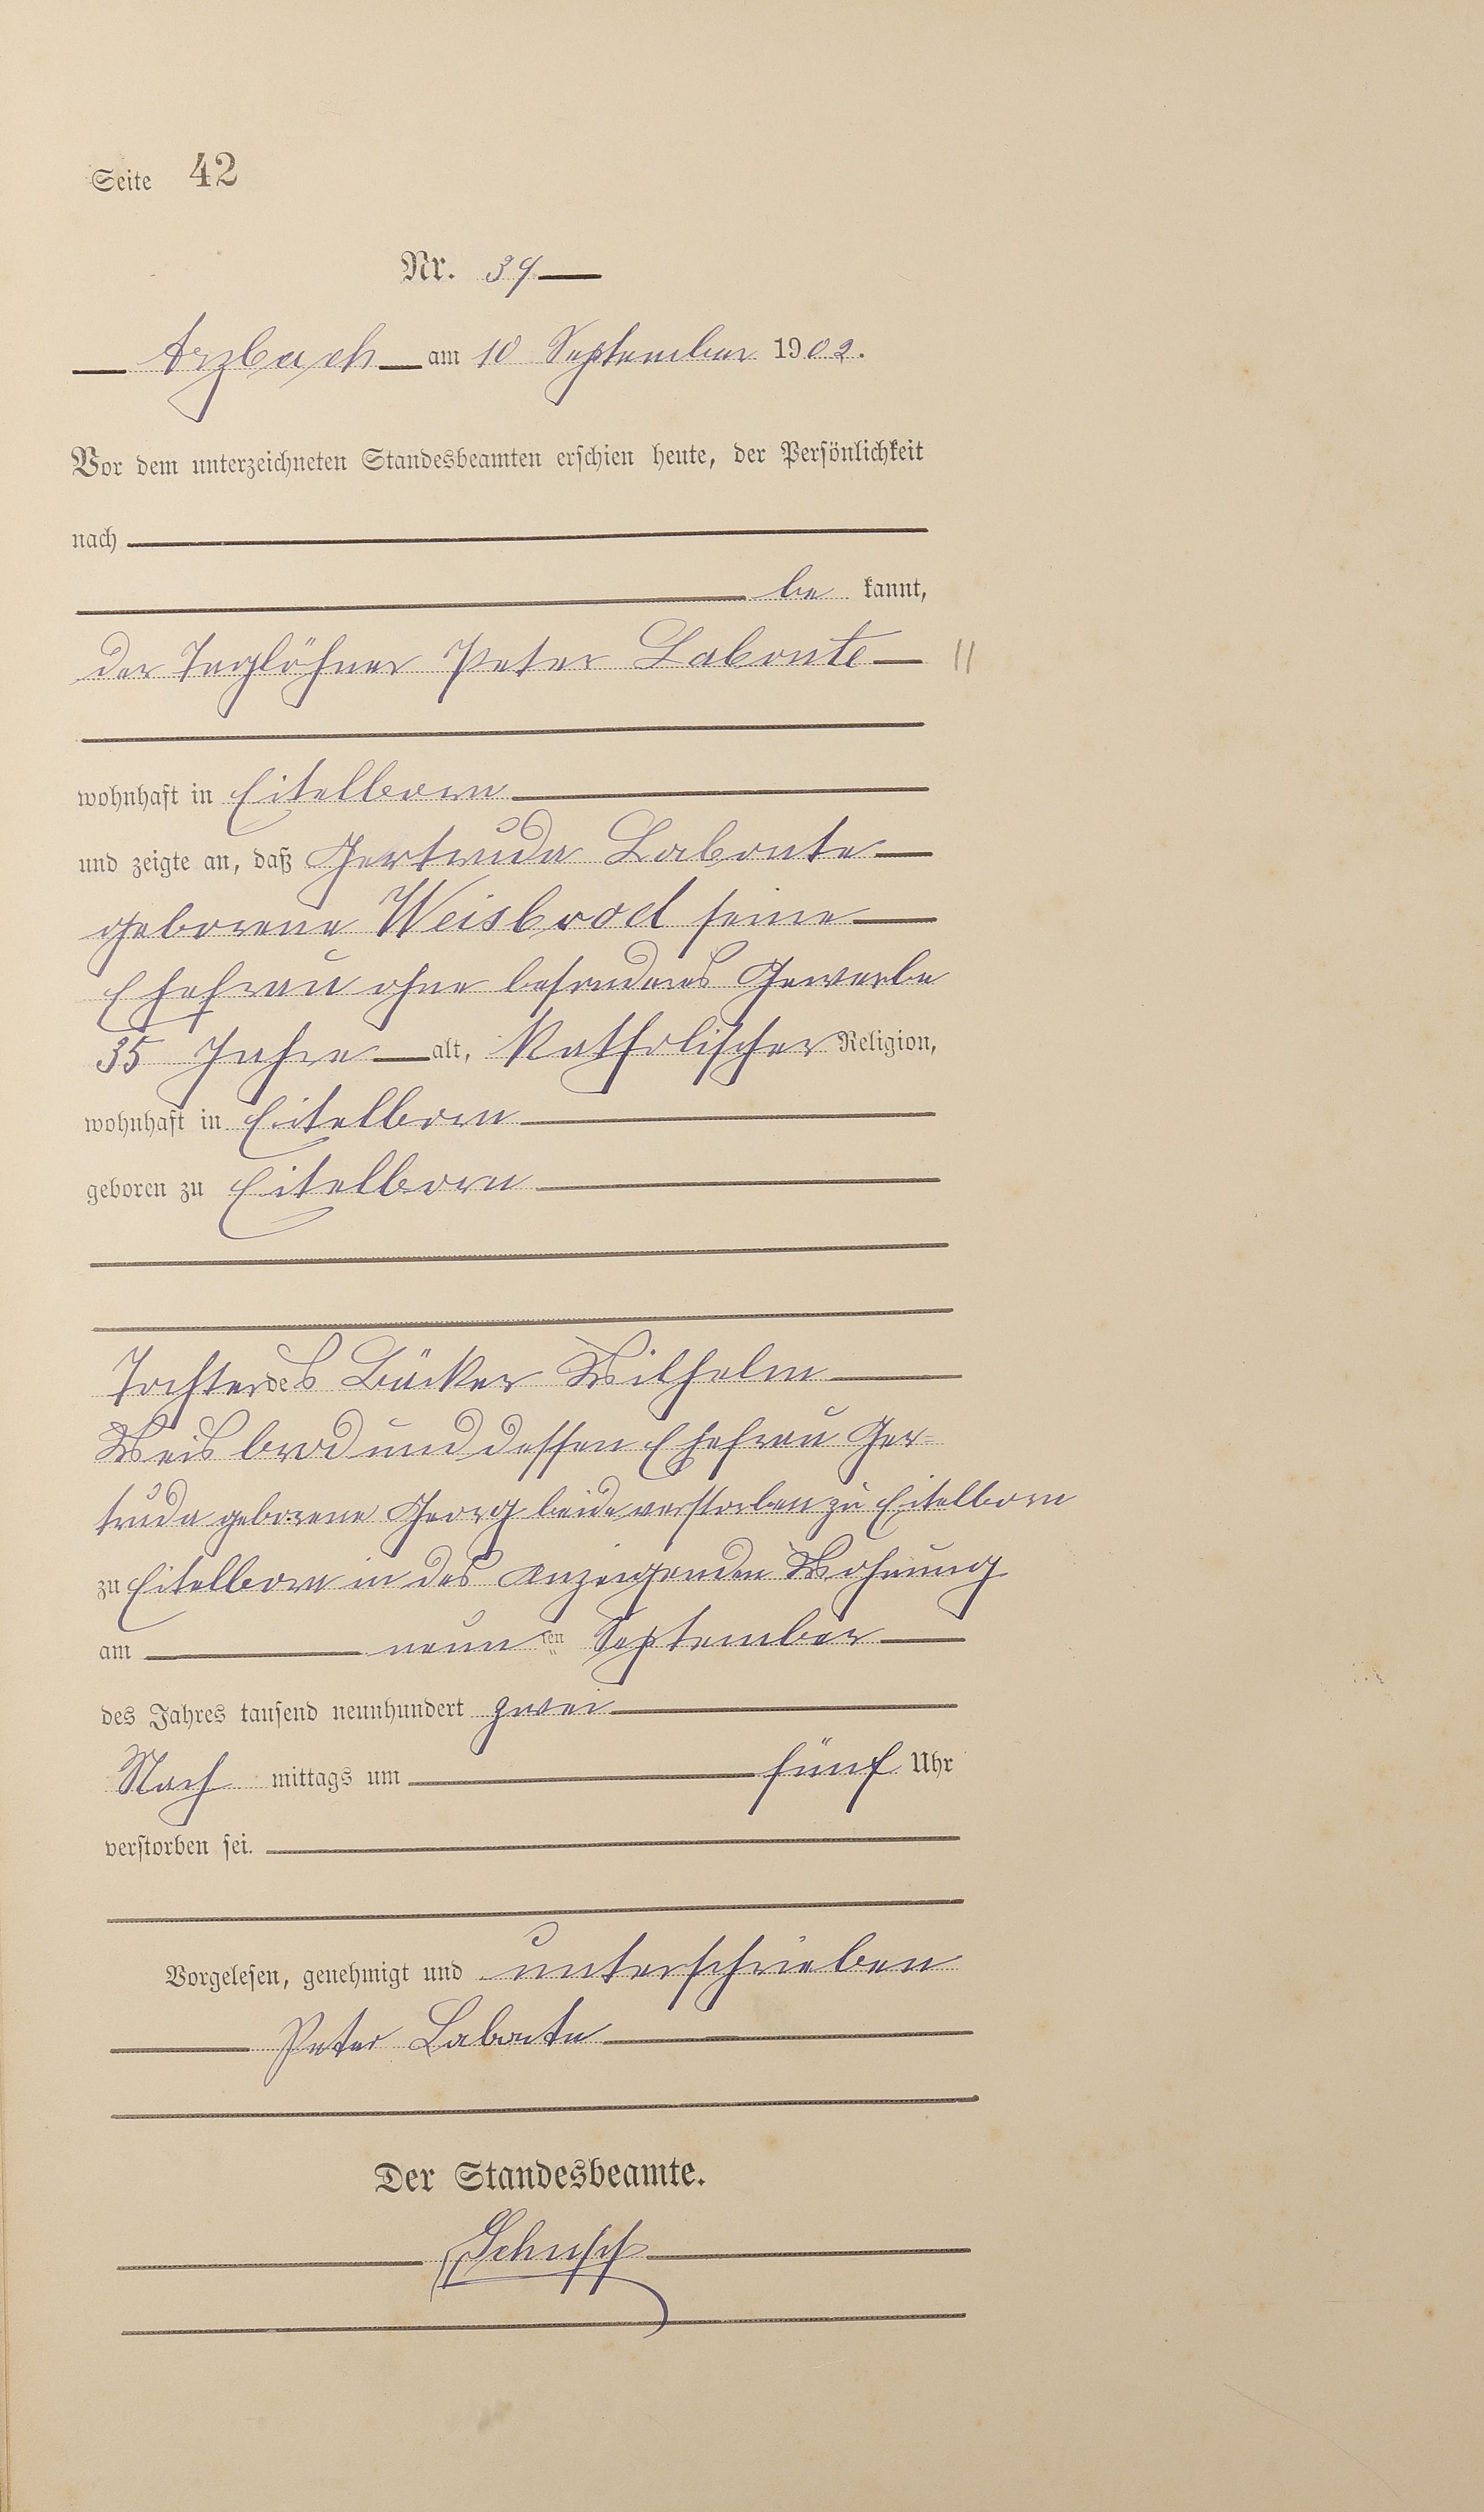 Seite 42
Nr. 39
Arzbach am 10 September 1902.
Vor dem unterzeichneten Standesbeamten erschien heute, der Persönlichkeit
nach
be kannt,
der Taglöhner Peter Labonte
wohnhaft in Eitelborn
und zeigte an, daß Gertruda Labonte
geborene Weisbrod seine
Ehefrau ohne besonderes Gewerbe
35 Jahre alt, Katholischer Religion,
wohnhaft in Eitelborn
geboren zu Eitelborn
Tochter des Bäcker Wilhelm
Weisbrod und dessen Ehefrau Ger=
truda geborene Georg beide verstorben zu Eitelborn
zu Eitelborn in des Anzeigenden Wohnung
am neun ten September
des Jahres tausend neunhundert zwei
Nach mittags um fünf Uhr
verstorben sei.
Vorgelesen, genehmigt und unterschrieben
Peter Labonte
Der Standesbeamte.